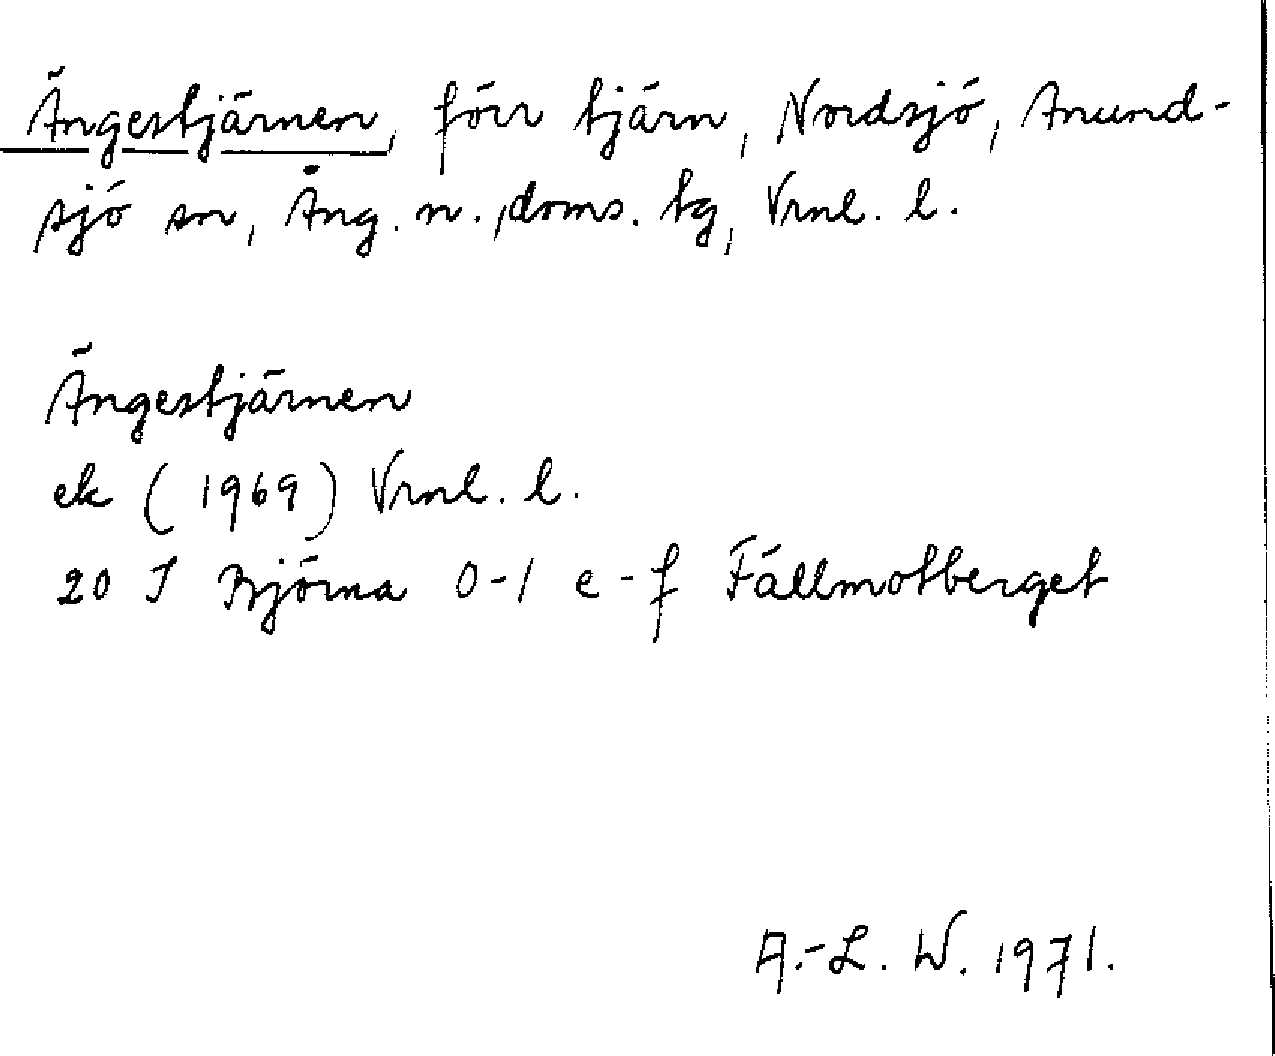 Ängestjärnen, förr tjärn, Nordsjö, Anund-
sjö sn, Ång. n., doms. tg, Vrnl. l.
Ängestjärnen
ek (1969) Vrnl. l.
20 J Björna 0-1 e-f Fällmotberget
A.-L. W. 1971.